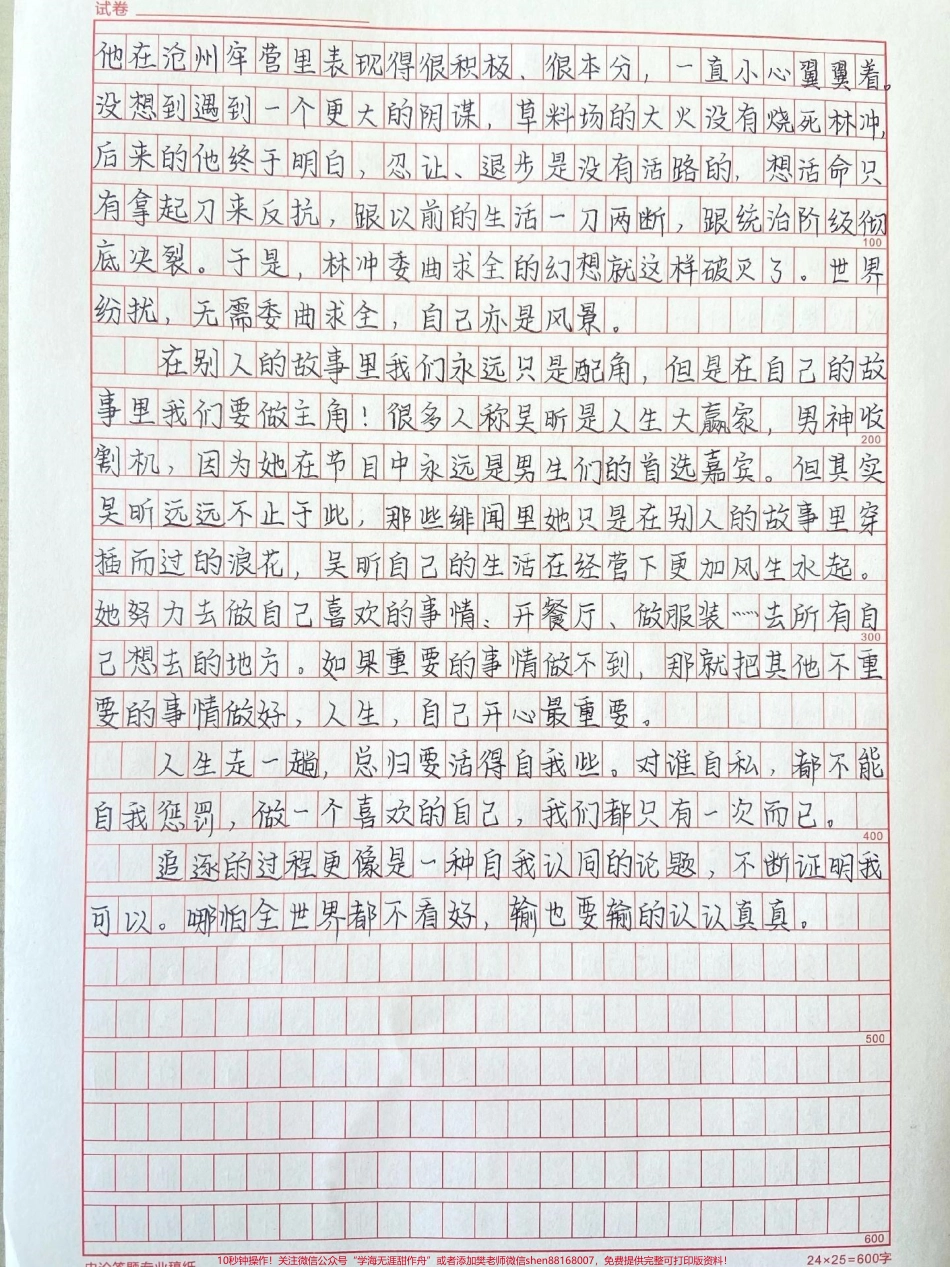 试卷
他在沧州牢营里表现得很积极、很本分，一直小心翼翼着。
没想到遇到一个更大的阴谋，草料场的大火没有烧死林冲，
后来的他终于明白，忍让、退步是没有活路的，想活命只
有拿起刀来反抗，跟以前的生活一刀两断，跟统治阶级彻
100
底决裂。于是，林冲委曲求全的幻想就这样破灭了。世界
纷扰，无需委曲求全，自己亦是风景。
在别人的故事里我们永远只是配角，但是在自己的故
事里我们要做主角！很多人称吴昕是人生大赢家，男神收
200
割机，因为她在节目中永远是男生们的首选嘉宾。但其实
吴昕远远不止于此，那些绯闻里她只是在别人的故事里穿
插而过的浪花，吴昕自己的生活在经营下更加风生水起。
她努力去做自己喜欢的事情：开餐厅、做服装……去所有自
300
己想去的地方。如果重要的事情做不到，那就把其他不重
要的事情做好，人生，自己开心最重要。
人生走一趟，总归要活得自我些。对谁自私，都不能
自我惩罚，做一个喜欢的自己，我们都只有一次而已。
400
追逐的过程更像是一种自我认同的论题，不断证明我
可以。哪怕全世界都不看好，输也要输的认认真真。
500
600
申论答题专业稿纸
10秒钟操作！关注微信公众号“学海无涯甜作舟”或者添加樊老师微信shen88168007，免费提供完整可打印版资料！
24×25=600字